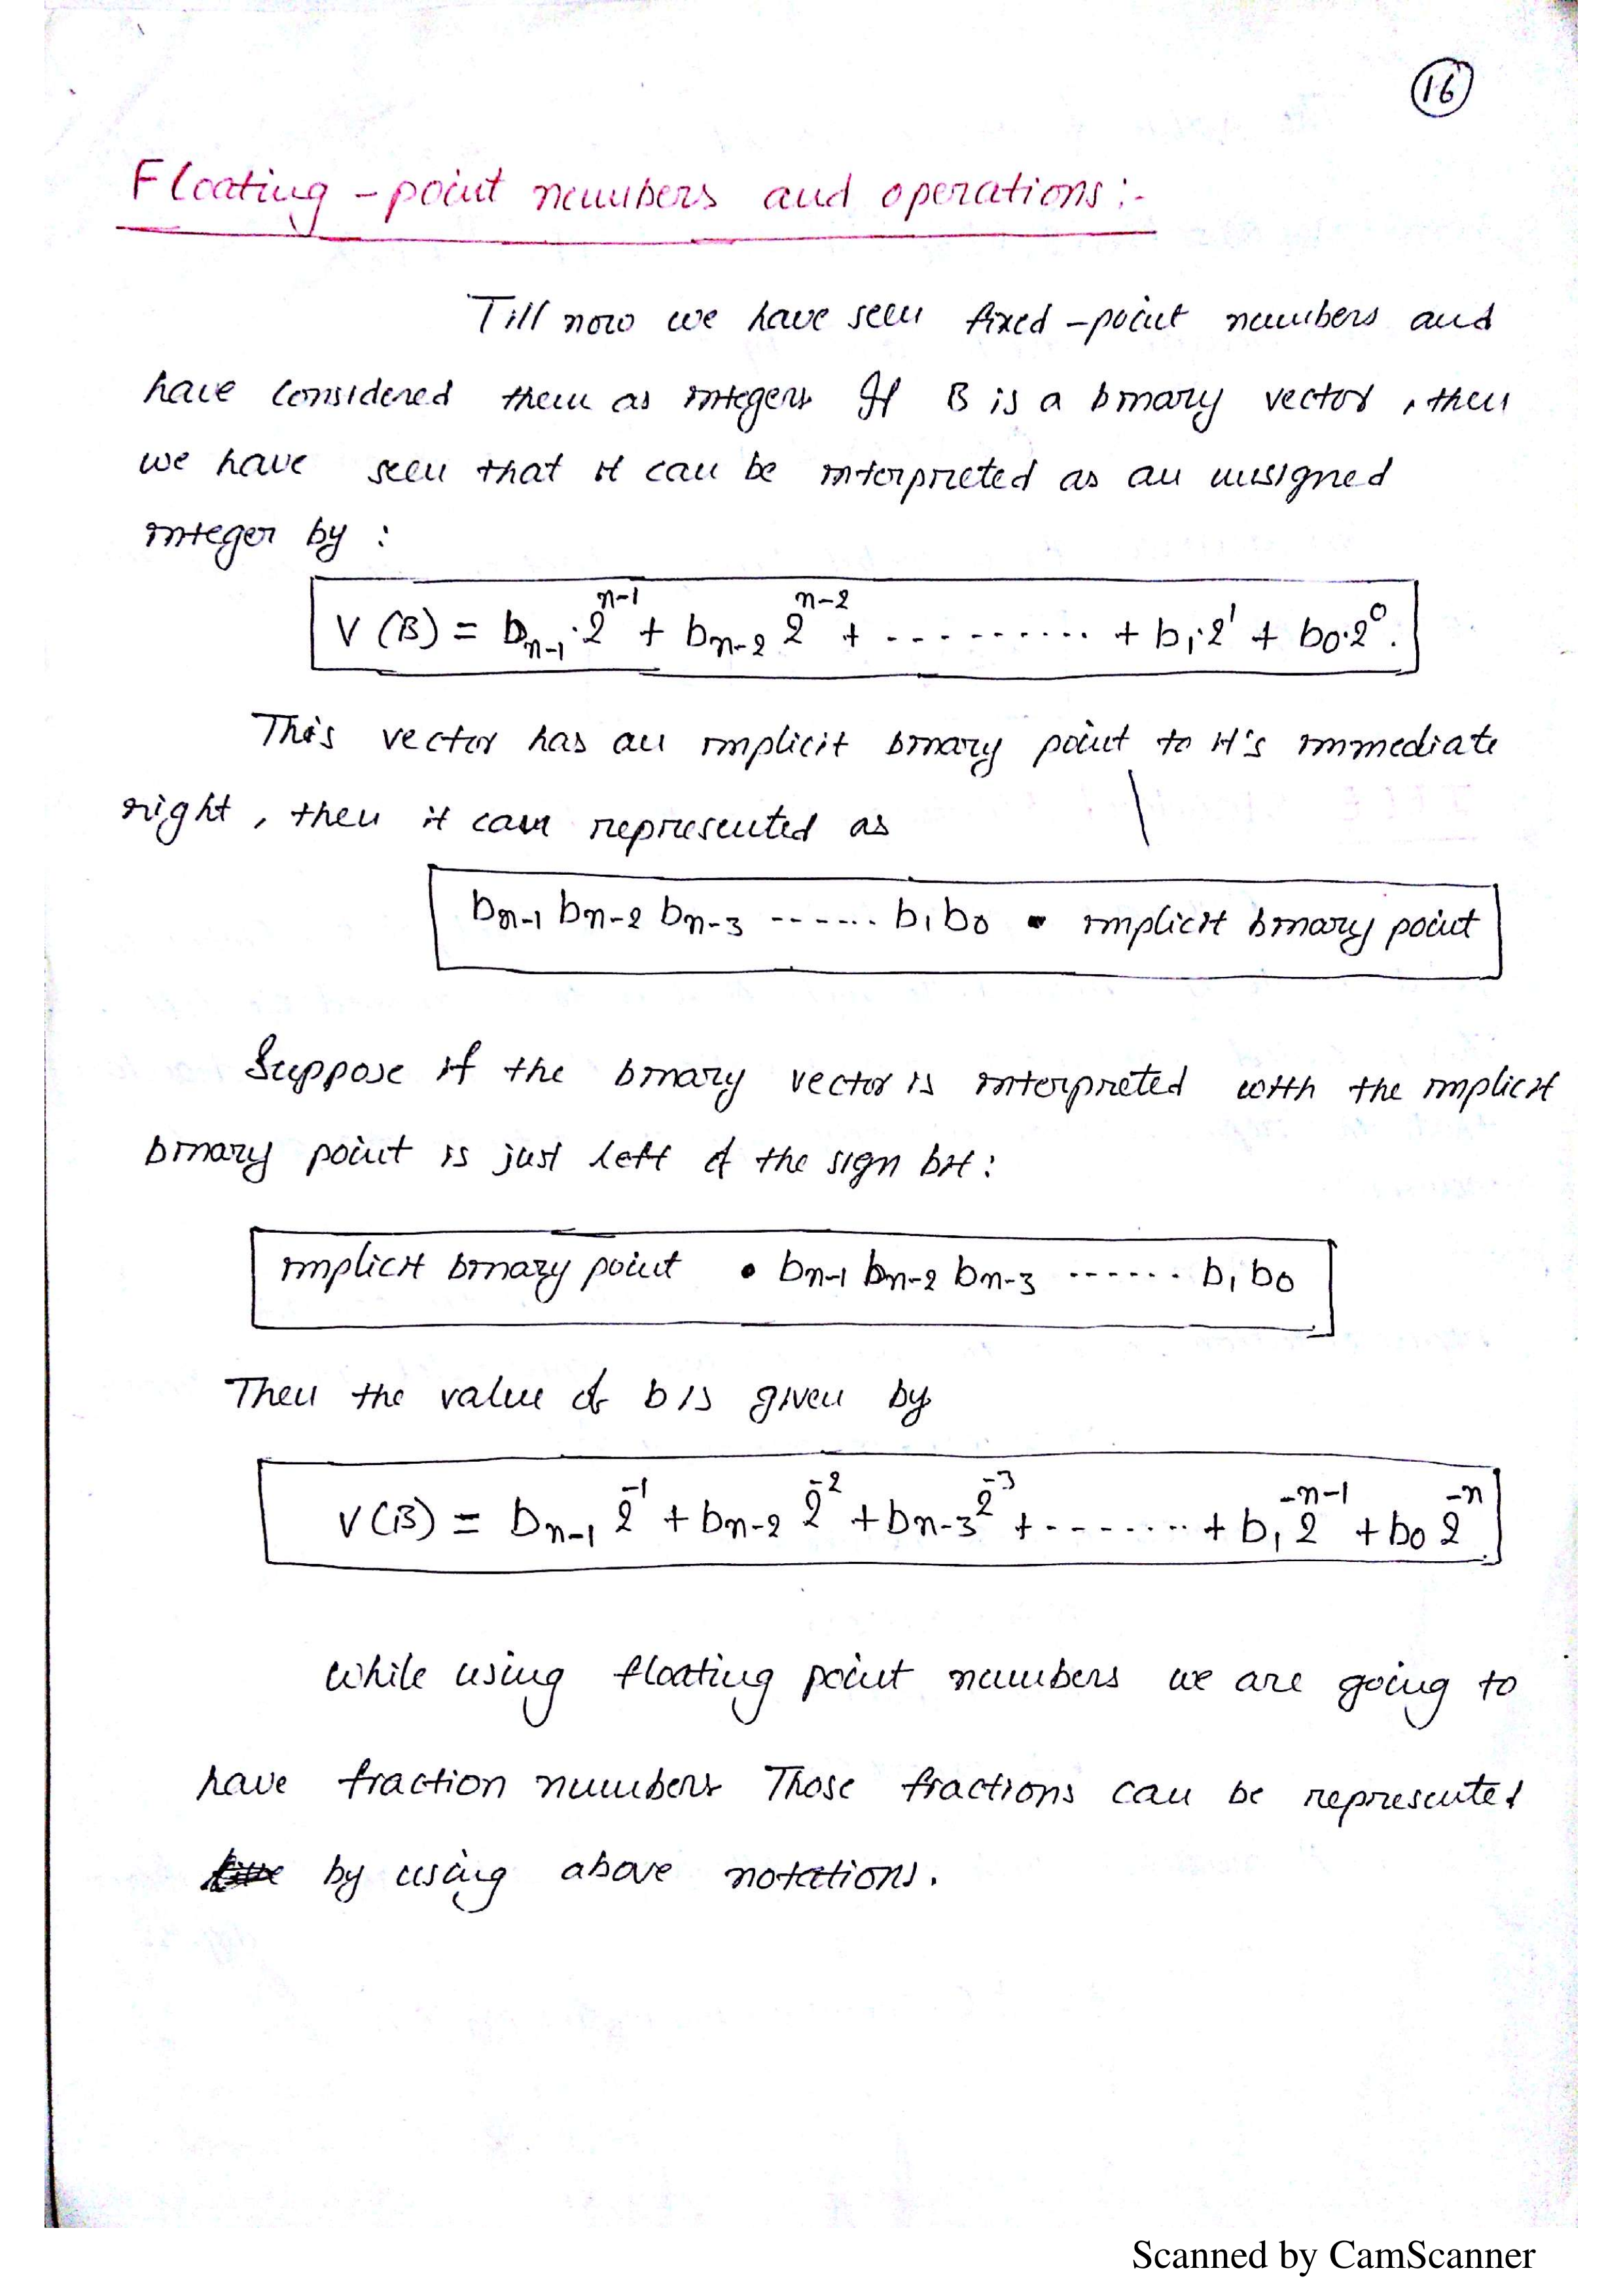 16
Floating-point numbers and operations:-
Till now we have seen fixed-point numbers and
have considered them as integers If B is a binary vector, then
we have seen that it can be interpreted as an unsigned
integer by :
V(B) = bₙ₋₁·2ⁿ⁻¹ + bₙ₋₂ 2ⁿ⁻² + ---------- + b₁·2¹ + b₀·2⁰.
This vector has an implicit binary point to it's immediate
right, then it can represented as
bₙ₋₁ bₙ₋₂ bₙ₋₃ ------- b₁ b₀ • implicit binary point
Suppose if the binary vector is interpreted with the implicit
binary point is just left of the sign bit :
implicit binary point • bₙ₋₁ bₙ₋₂ bₙ₋₃ ------- b₁ b₀
Then the value of b is given by
V(B) = bₙ₋₁ 2⁻¹ + bₙ₋₂ 2⁻² + bₙ₋₃ 2⁻³ + -------- + b₁ 2⁻ⁿ⁻¹ + b₀ 2⁻ⁿ.
While using floating point numbers we are going to
have fraction numbers Those fractions can be represented
by using above notations.
Scanned by CamScanner